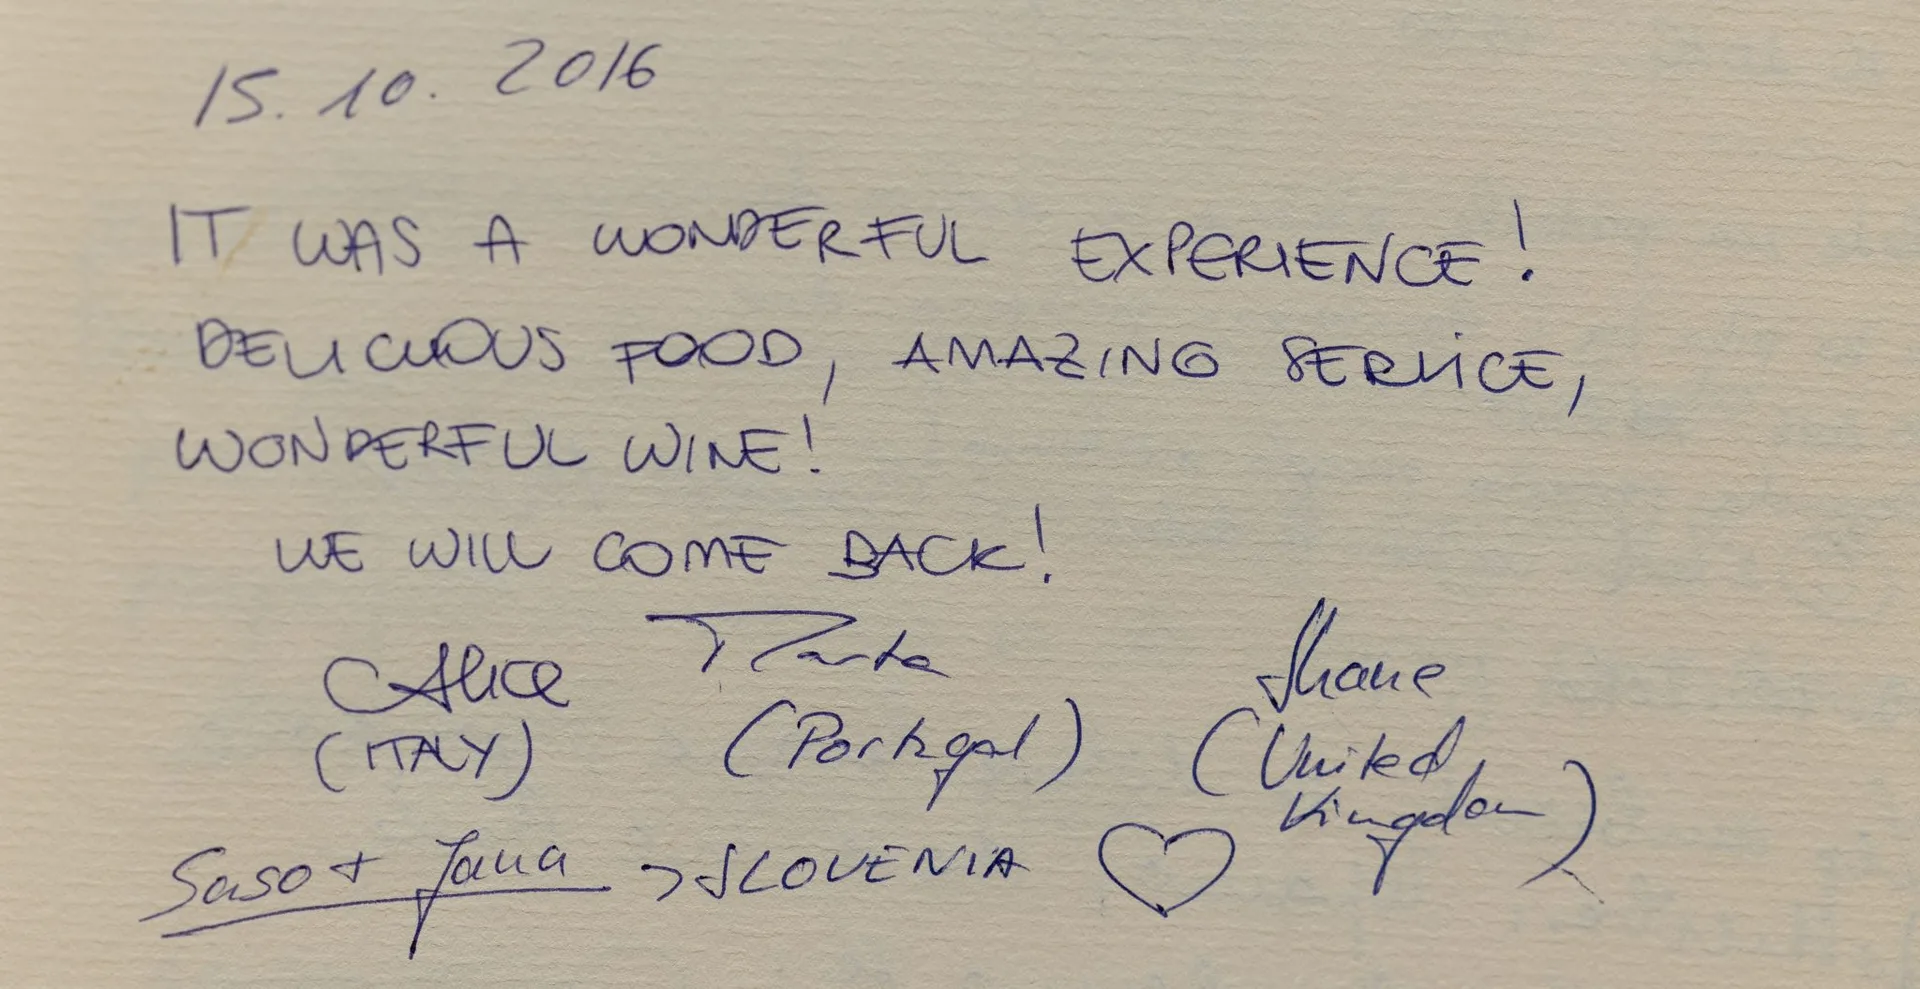 15. 10. 2016
IT WAS A WONDERFUL EXPERIENCE!
DELICIOUS FOOD, AMAZING SERVICE,
WONDERFUL WINE!
WE WILL COME BACK!
Alice Marta Shane
(ITALY) (Portugal) (United
Kingdom)
Saso + Jana → SLOVENIA ♡